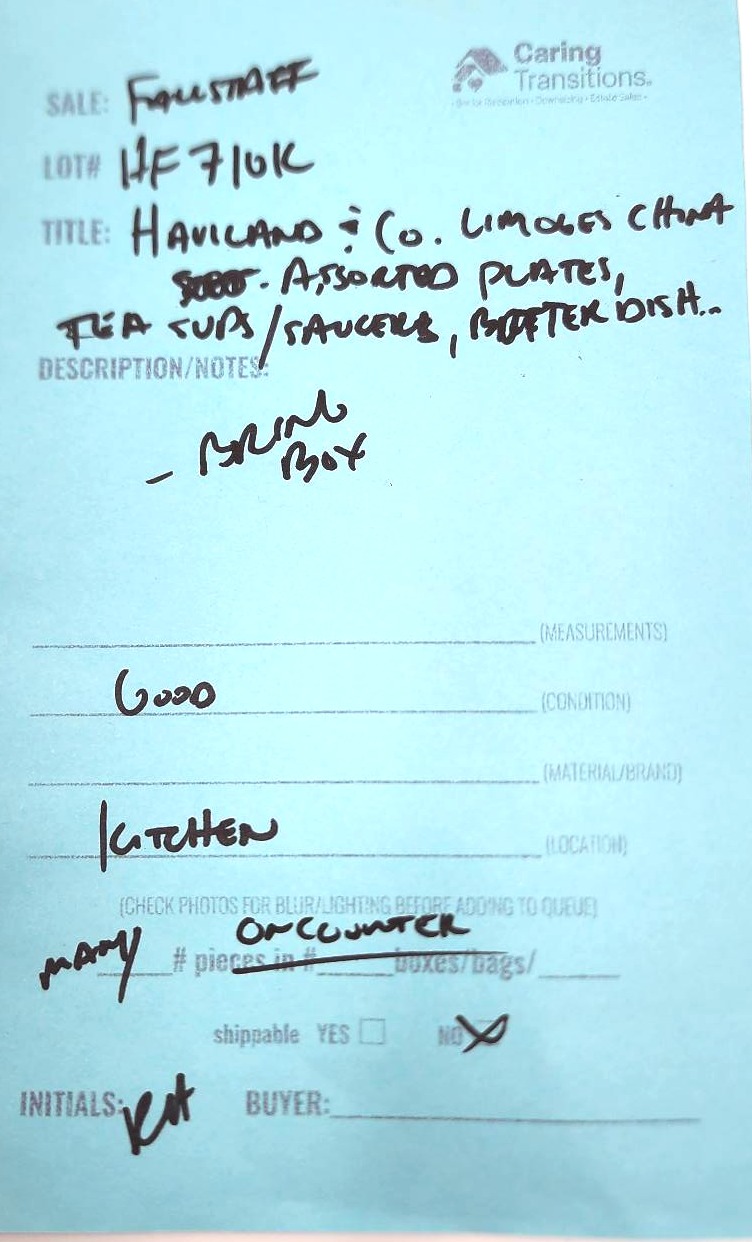 Caring
Transitions®
SALE: FALLSTAFF
LOT# HF710K
TITLE: HAVILAND & Co. LIMOGES CHINA
ASSORTED PLATES,
TEA CUPS/SAUCERS, BUTTER DISH..
DESCRIPTION/NOTES:
- BRING
BOX
(MEASUREMENTS)
GOOD (CONDITION)
(MATERIAL/BRAND)
KITCHEN (LOCATION)
(CHECK PHOTOS FOR BLUR/LIGHTING BEFORE ADDING TO QUEUE)
ON COUNTER
MANY # pieces in # boxes/bags/
shippable YES NO X
INITIALS: BUYER: